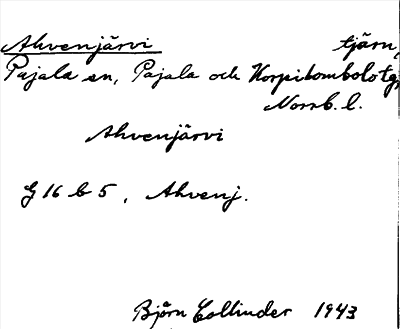 Ahvenjärvi tjärn,
Pajala sn, Pajala och Korpilombolo tg,
Norrb. l.
Ahvenjärvi
G 16 b 5, Ahvenj.
Björn Collinder 1943